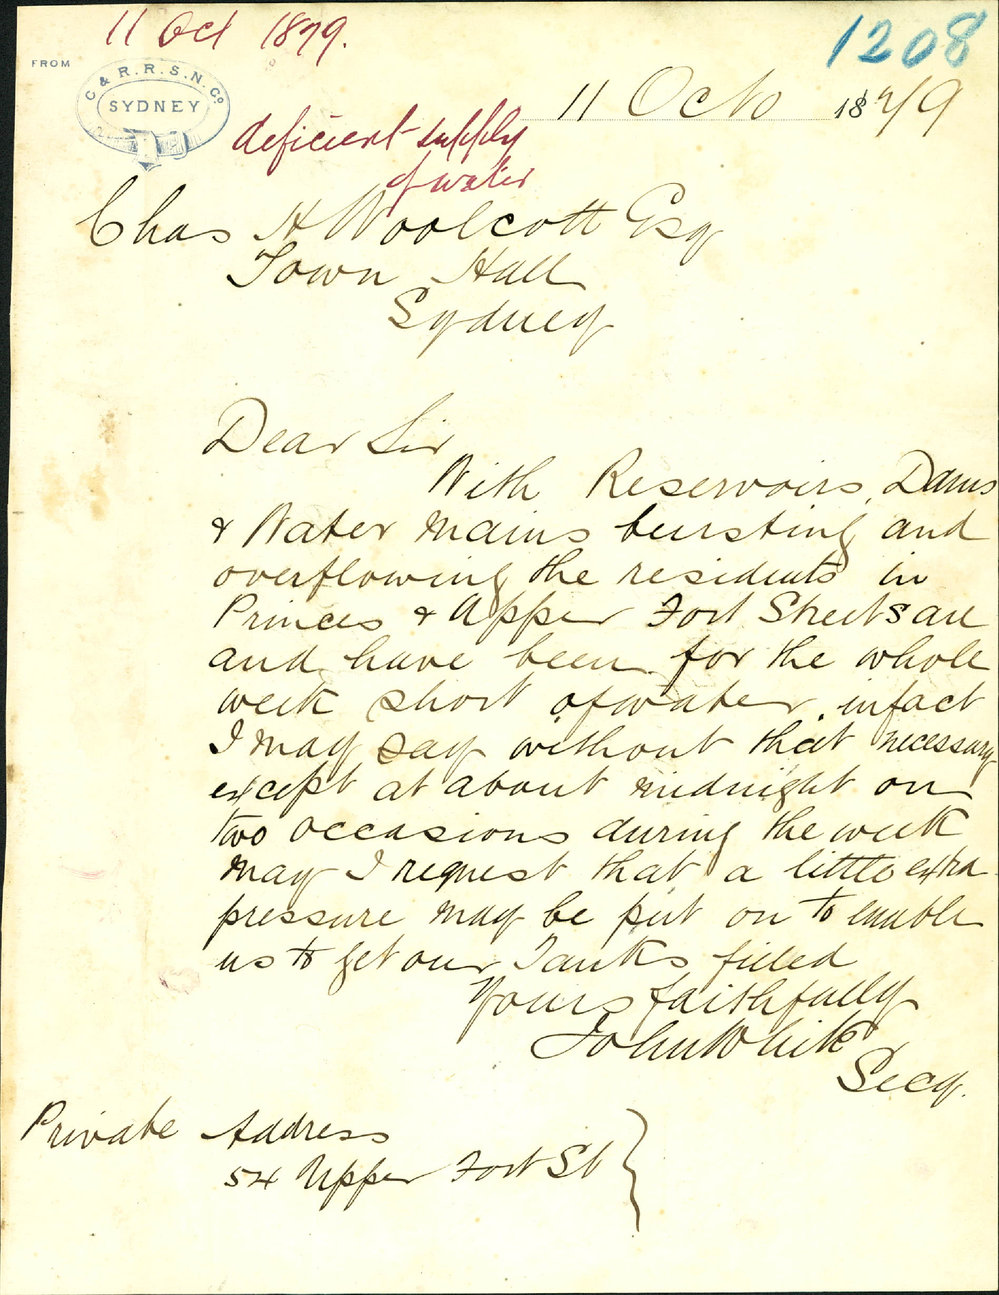 11 Oct 1879.
1208
FROM
C & R. R. S. N. Co.
SYDNEY
11 Octo 1879
deficient supply
of water
Chas H Woolcott Esq
Town Hall
Sydney
Dear Sir
With Reservoirs, Dams
& Water mains bursting and
overflowing the residents in
Princes & Upper Fort Streets are
and have been for the whole
week short of water, in fact
I may say without that necessary
except at about midnight on
two occasions during the week
may I request that a little extra
pressure may be put on to enable
us to get our Tanks filled
Yours faithfully
John White
Secy.
Private Address
54 Upper Fort St